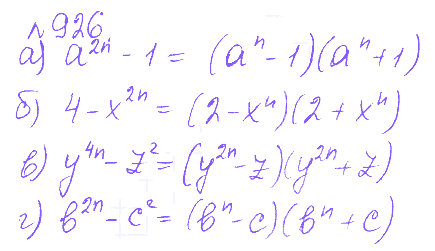 №926
а) a²ⁿ - 1 = (aⁿ - 1)(aⁿ + 1)
б) 4 - x²ⁿ = (2 - xⁿ)(2 + xⁿ)
в) y⁴ⁿ - z² = (y²ⁿ - z)(y²ⁿ + z)
г) b²ⁿ - c² = (bⁿ - c)(bⁿ + c)